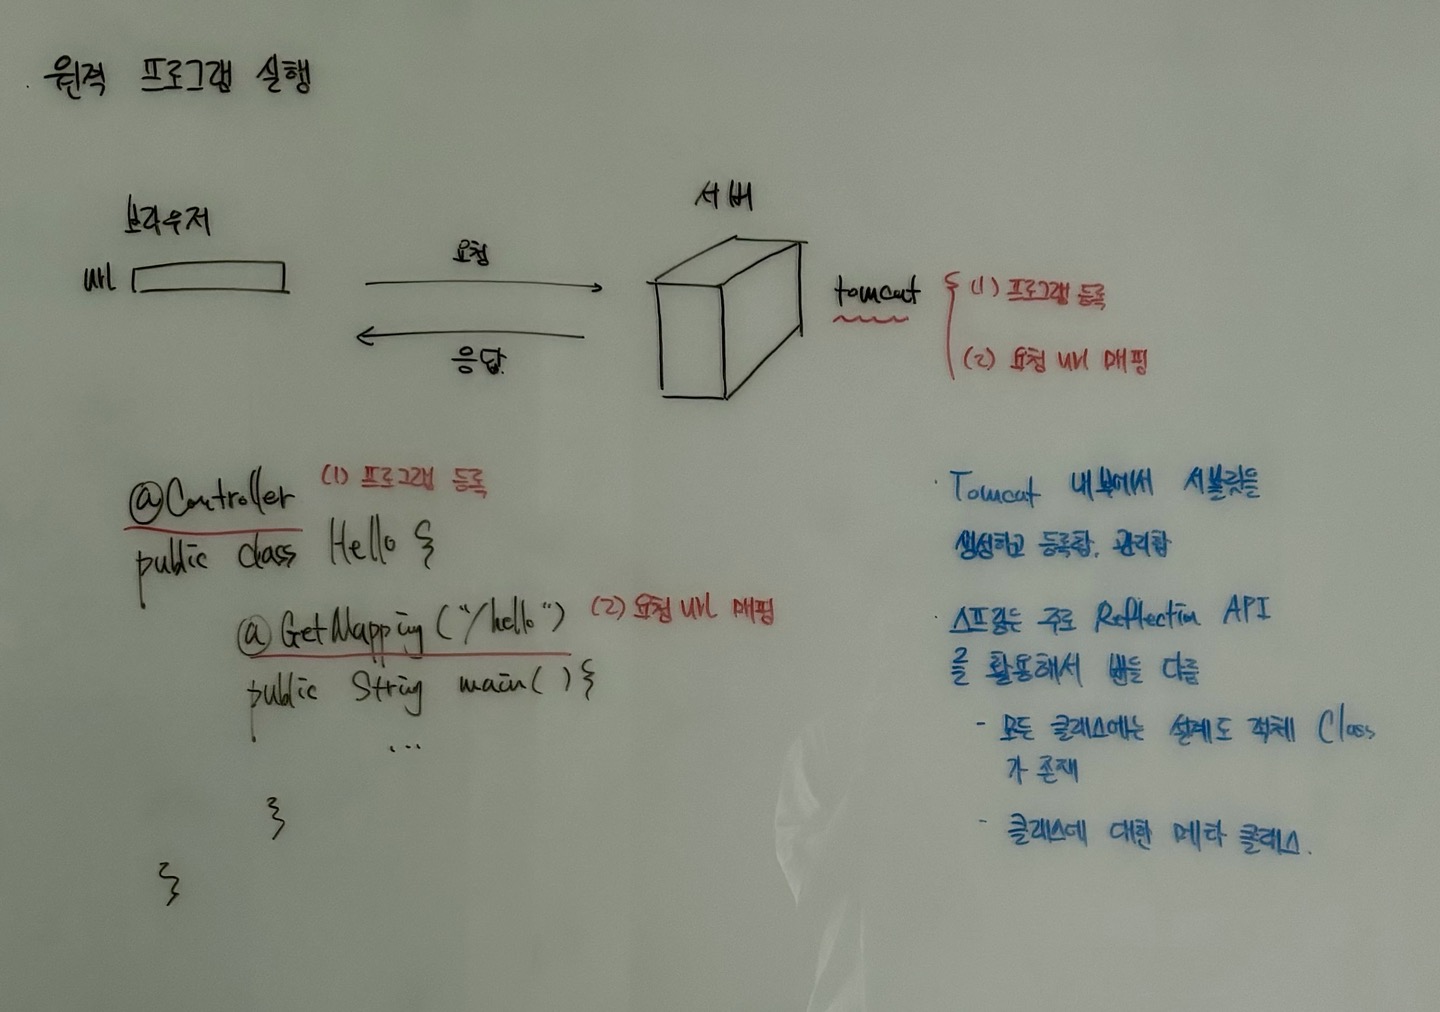 원격 프로그램 실행
브라우저
url
요청
응답.
서버
tomcat
{ (1) 프로그램 등록
(2) 요청 url 매핑
@Controller (1) 프로그램 등록
public class Hello {
@GetMapping ("/hello") (2) 요청 url 매핑
public String main( ) {
...
}
}
· Tomcat 내부에서 서블릿을
생성하고 등록함, 관리함
· 스프링는 주로 Reflection API
를 활용해서 빈들 다룸
- 모든 클래스에는 설계도 객체 Class
가 존재
- 클래스에 대한 메타 클래스.